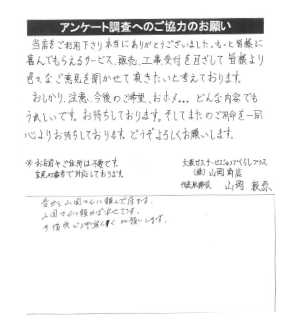 アンケート調査へのご協力のお願い
当店をご利用下さり本当にありがとうございました。もっと皆様に
喜んでもらえるサービス、販売、工事受付を目ざして皆様より
色々なご意見を聞かせて頂きたいと考えております。
おしかり、注意、今後のご希望、おホメ… どんな内容でも
うれしいです。お待ちしております。そしてまたのご用命を一同
心よりお待ちしております。どうぞよろしくお願いします。
※お名前やご住所は不要です。
大阪ガスサービスショップ
(株)山岡商店
代表取締役 山岡
昔から山岡さんに頼んで居ます。
山岡さんに頼めば
お願いします。